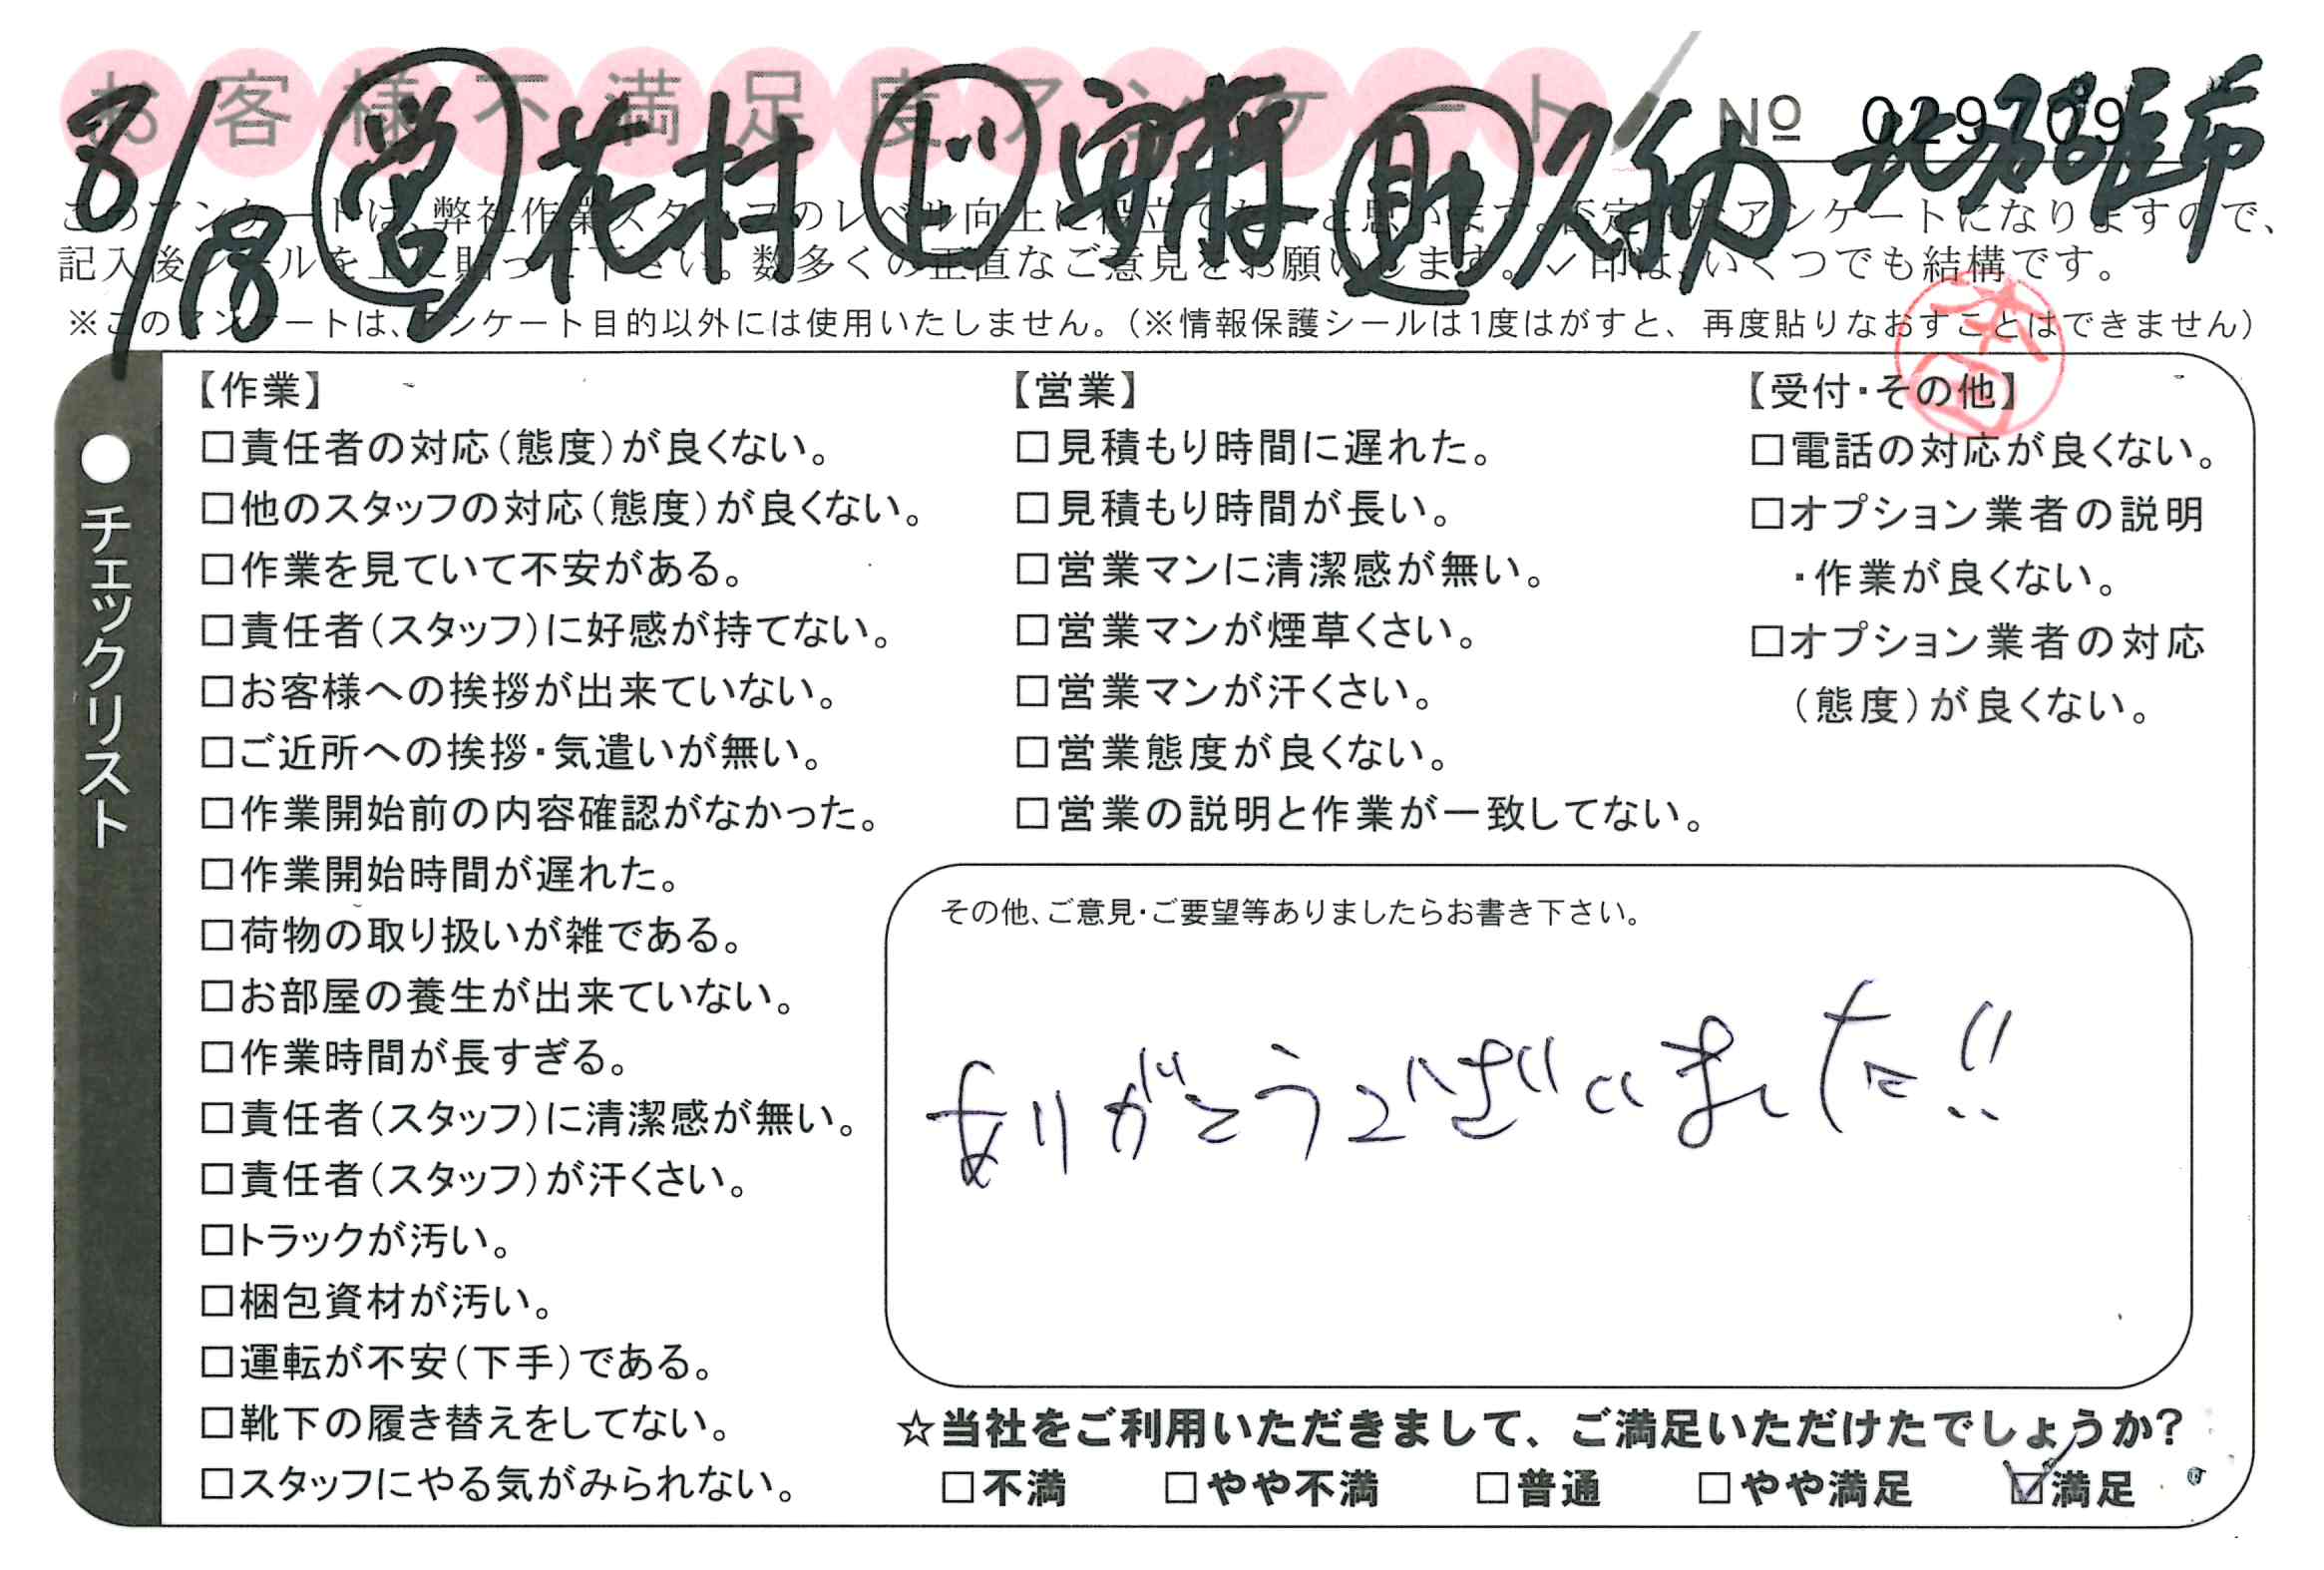 お客様不満足度アンケート № 029709
8/18 営 花村 ド 安藤 助 久納 北名古屋市
このアンケートは、弊社作業スタッフのレベル向上に役立てたいと思います。否定的なアンケートになりますので、
記入後シールを上に貼って下さい。数多くの正直なご意見をお願いします。✓印は、いくつでも結構です。
※このアンケートは、アンケート目的以外には使用いたしません。（※情報保護シールは1度はがすと、再度貼りなおすことはできません）
●チェックリスト
【作業】
□責任者の対応（態度）が良くない。
□他のスタッフの対応（態度）が良くない。
□作業を見ていて不安がある。
□責任者（スタッフ）に好感が持てない。
□お客様への挨拶が出来ていない。
□ご近所への挨拶・気遣いが無い。
□作業開始前の内容確認がなかった。
□作業開始時間が遅れた。
□荷物の取り扱いが雑である。
□お部屋の養生が出来ていない。
□作業時間が長すぎる。
□責任者（スタッフ）に清潔感が無い。
□責任者（スタッフ）が汗くさい。
□トラックが汚い。
□梱包資材が汚い。
□運転が不安（下手）である。
□靴下の履き替えをしてない。
□スタッフにやる気がみられない。
【営業】
□見積もり時間に遅れた。
□見積もり時間が長い。
□営業マンに清潔感が無い。
□営業マンが煙草くさい。
□営業マンが汗くさい。
□営業態度が良くない。
□営業の説明と作業が一致してない。
【受付・その他】
□電話の対応が良くない。
□オプション業者の説明
・作業が良くない。
□オプション業者の対応
（態度）が良くない。
その他、ご意見・ご要望等ありましたらお書き下さい。
ありがとうございました!!
☆当社をご利用いただきまして、ご満足いただけたでしょうか？
□不満 □やや不満 □普通 □やや満足 ☑満足